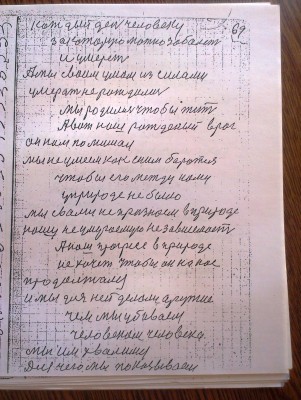 69
каждый ден человеку
за которую можно заболет
и умерет
А мы своим умом из силами
умерат не рождалис
мы родилися чтобы жит
А вот наш рожденый враг
он нам помешал
мы не умеем как с ним боротся
чтобы его между нами
у природе не было
мы с вами не признаем в природе
нашу не умираемую независимост
А наш прогрес в природе
не хочет чтобы он на нас
продолжал
и мы для ней делаем другие
чем мы убиваем
человеком человека
мы им хвалимся
для чего мы показываем